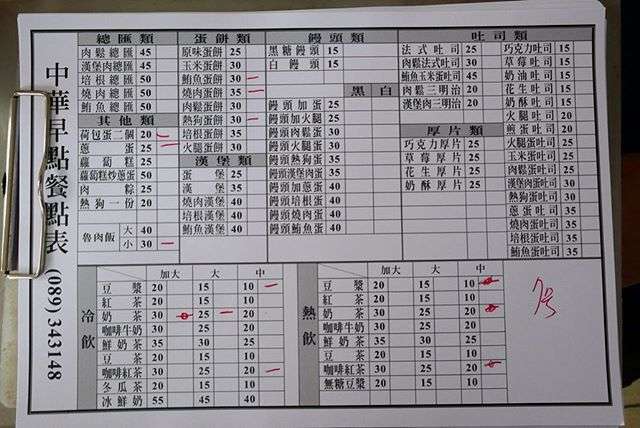 中華早點餐點表 (089) 343148
總匯類
肉鬆總匯 45
漢堡肉總匯 45
培根總匯 50
燒肉總匯 50
鮪魚總匯 50
其他類
荷包蛋二個 20
蔥蛋 25
蘿蔔糕 25
蘿蔔糕炒蔥蛋 50
肉粽 25
熱狗一份 20
魯肉飯 大 40
小 30
蛋餅類
原味蛋餅 25
玉米蛋餅 30
鮪魚蛋餅 30
燒肉蛋餅 35
肉鬆蛋餅 30
熱狗蛋餅 30
培根蛋餅 35
火腿蛋餅 30
漢堡類
蛋堡 25
漢堡 35
燒肉漢堡 40
培根漢堡 40
鮪魚漢堡 40
饅頭類
黑糖饅頭 15
白饅頭 15
黑 白
饅頭加蛋 25
饅頭加火腿 25
饅頭火腿蛋 30
饅頭熱狗蛋 35
饅頭漢堡肉蛋 35
饅頭加蔥蛋 30
饅頭培根蛋 40
饅頭燒肉蛋 40
饅頭鮪魚蛋 40
吐司類
法式吐司 25
肉鬆法式吐司 30
鮪魚玉米蛋吐司 45
肉鬆三明治 20
漢堡肉三明治 20
厚片類
巧克力厚片 25
草莓厚片 25
花生厚片 25
奶酥厚片 25
巧克力吐司 15
草莓吐司 15
奶油吐司 15
花生吐司 15
奶酥吐司 15
火腿吐司 20
煎蛋吐司 20
火腿蛋吐司 25
玉米蛋吐司 25
肉鬆蛋吐司 25
漢堡肉蛋吐司 30
熱狗蛋吐司 30
蔥蛋吐司 30
燒肉蛋吐司 35
培根蛋吐司 35
鮪魚蛋吐司 35
冷飲
加大 大 中
豆漿 20 15 10
紅茶 20 15 10
奶茶 30 25 20
咖啡牛奶 30 25 20
鮮奶茶 35 30 25
豆茶 20 15 10
咖啡紅茶 30 25 20
冬瓜茶 20 15 10
冰鮮奶 55 45 40
熱飲
加大 大 中
豆漿 20 15 10
紅茶 20 15 10
奶茶 30 25 20
咖啡牛奶 30 25 20
鮮奶茶 35 30 25
豆茶 20 15 10
咖啡紅茶 30 25 20
無糖豆漿 20 15 10